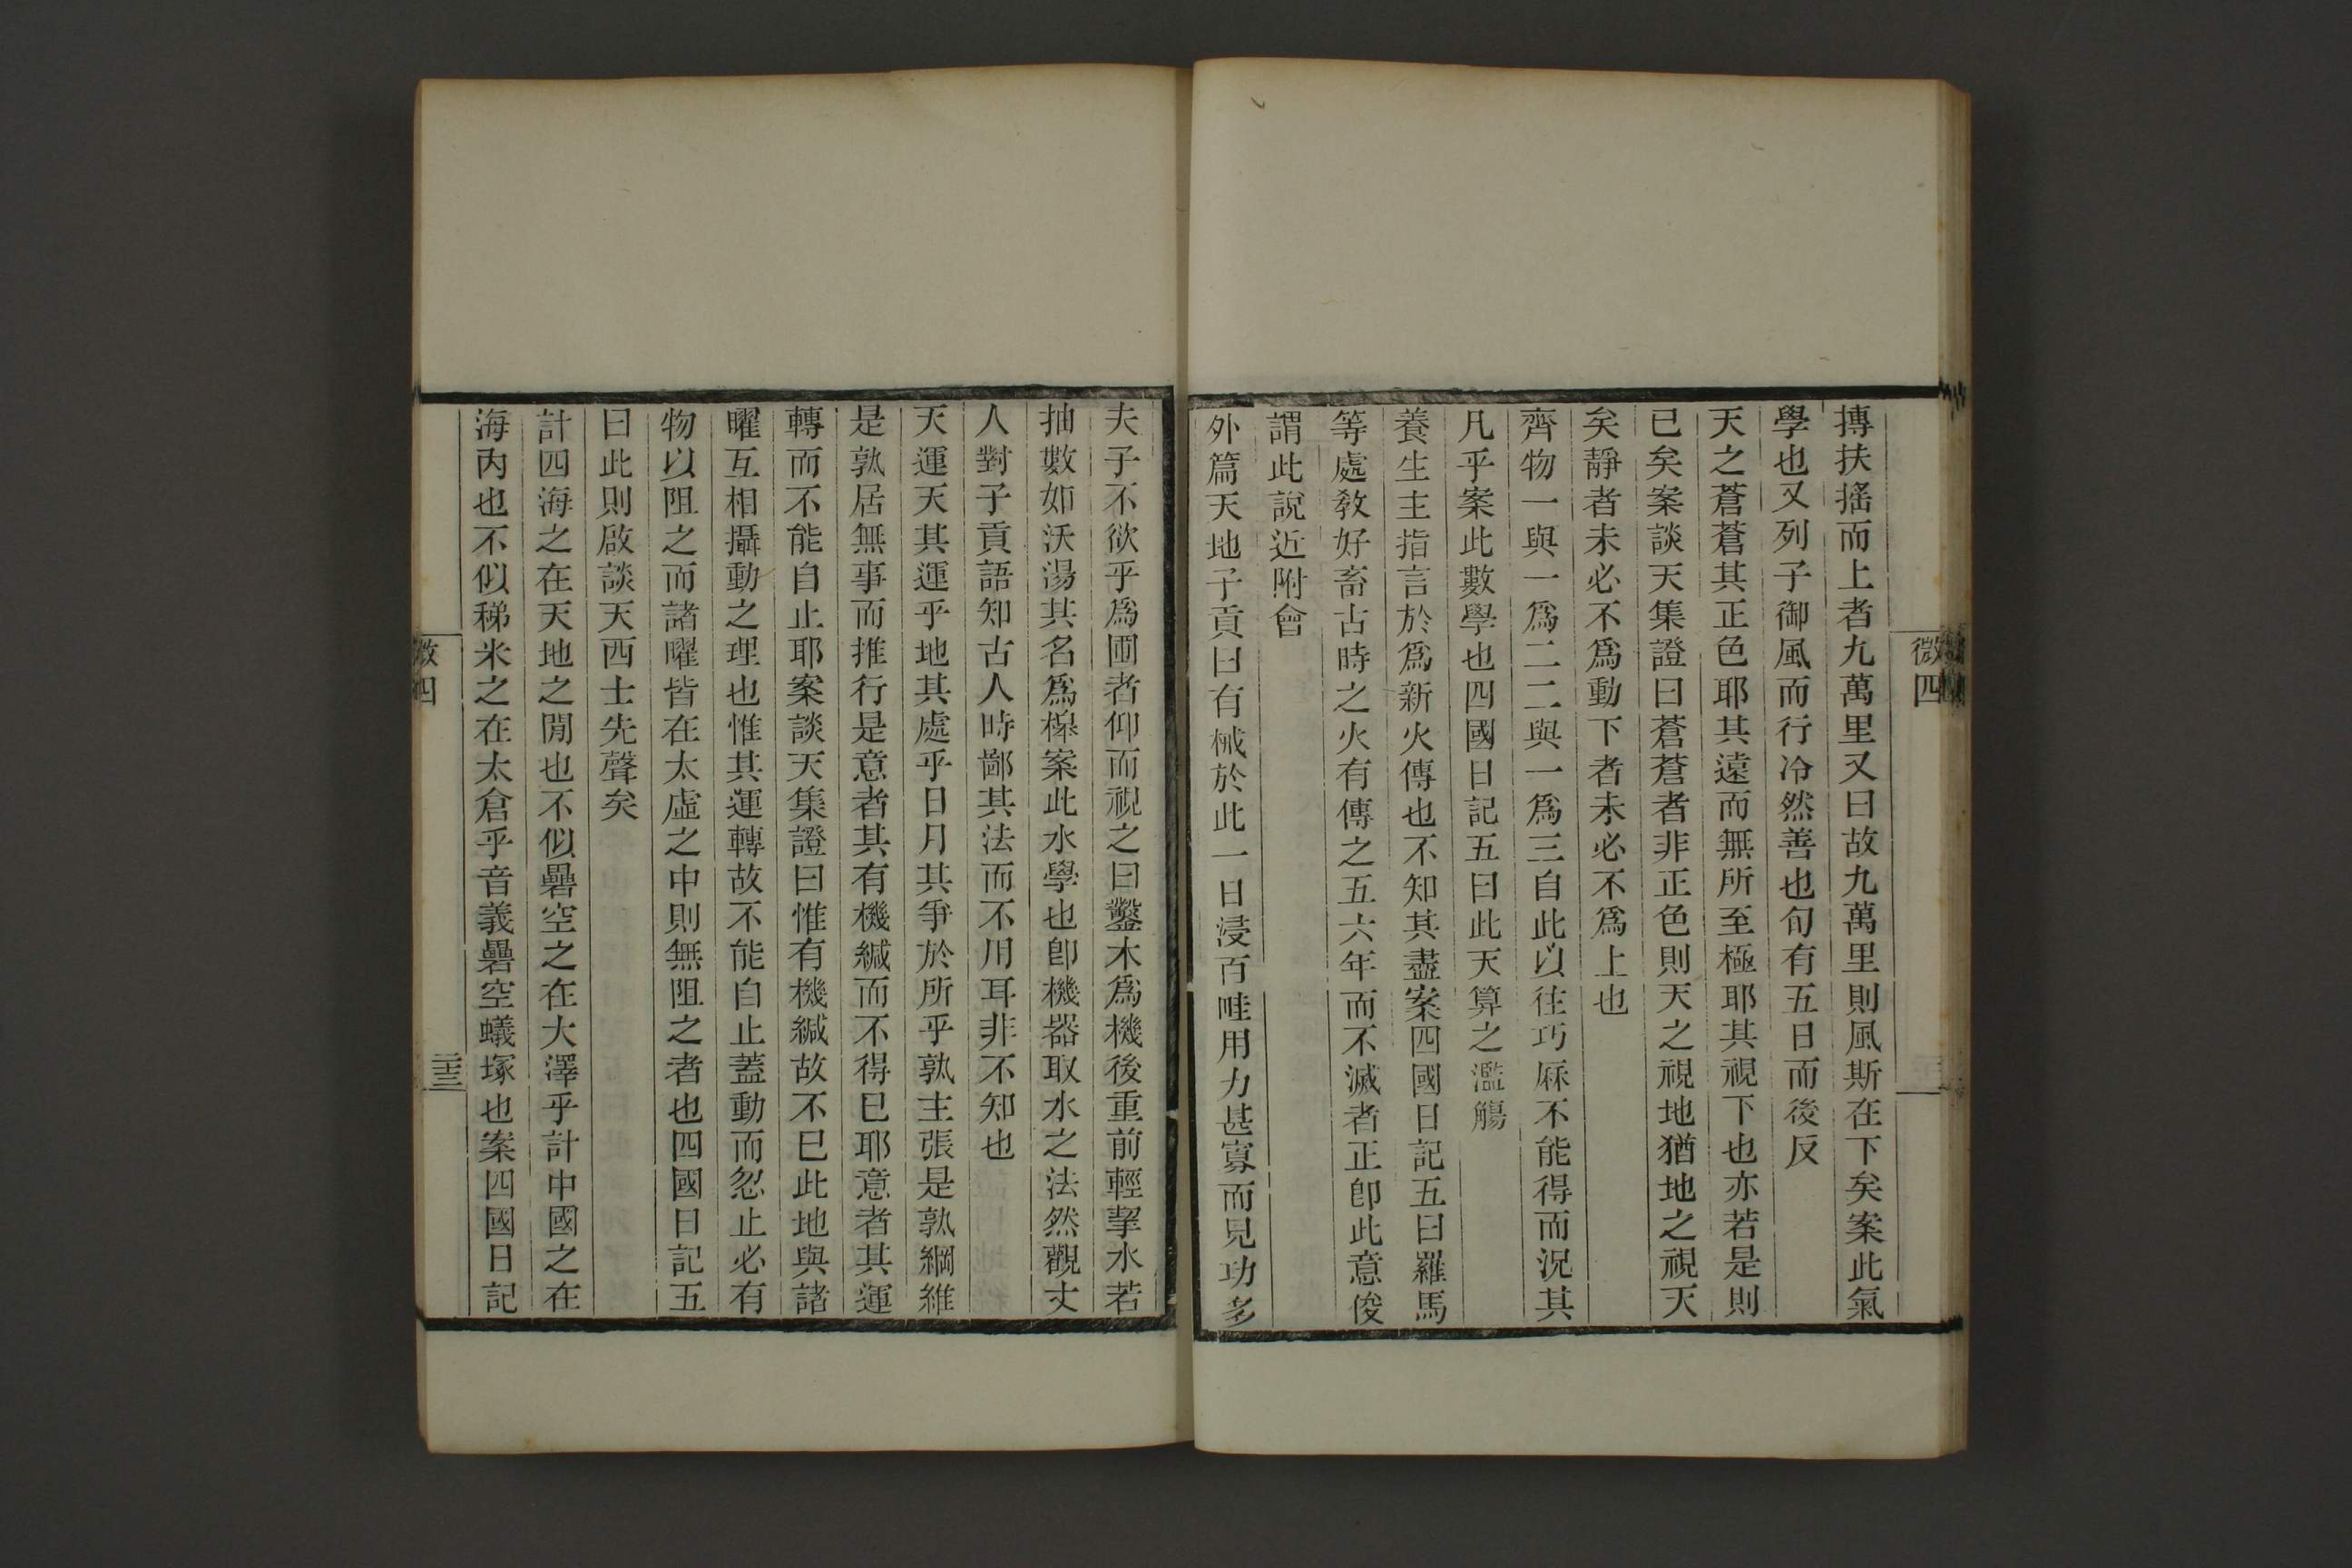 微四
搏扶搖而上者九萬里又曰故九萬里則風斯在下矣案此氣
學也又列子御風而行冷然善也旬有五日而後反
天之蒼蒼其正色耶其遠而無所至極耶其視下也亦若是則
已矣案談天集證曰蒼蒼者非正色則天之視地猶地之視天
矣靜者未必不爲動下者未必不爲上也
齊物一與一爲二二與一爲三自此以往巧厤不能得而況其
凡乎案此數學也四國日記五曰此天算之濫觴
養生主指言於爲新火傳也不知其盡案四國日記五曰羅馬
等處敎好畜古時之火有傳之五六年而不滅者正卽此意俊
謂此說近附會
外篇天地子貢曰有械於此一日浸百畦用力甚寡而見功多
夫子不欲乎爲圃者仰而視之曰鑿木爲機後重前輕挈水若
抽數如沃湯其名爲橰案此水學也卽機器取水之法然觀丈
人對子貢語知古人時鄙其法而不用耳非不知也
天運天其運乎地其處乎日月其爭於所乎孰主張是孰綱維
是孰居無事而推行是意者其有機緘而不得已耶意者其運
轉而不能自止耶案談天集證曰惟有機緘故不已此地與諸
曜互相攝動之理也惟其運轉故不能自止蓋動而忽止必有
物以阻之而諸曜皆在太虛之中則無阻之者也四國日記五
曰此則啟談天西士先聲矣
計四海之在天地之閒也不似礨空之在大澤乎計中國之在
海內也不似稊米之在太倉乎音義礨空蟻塚也案四國日記
微四
二十三